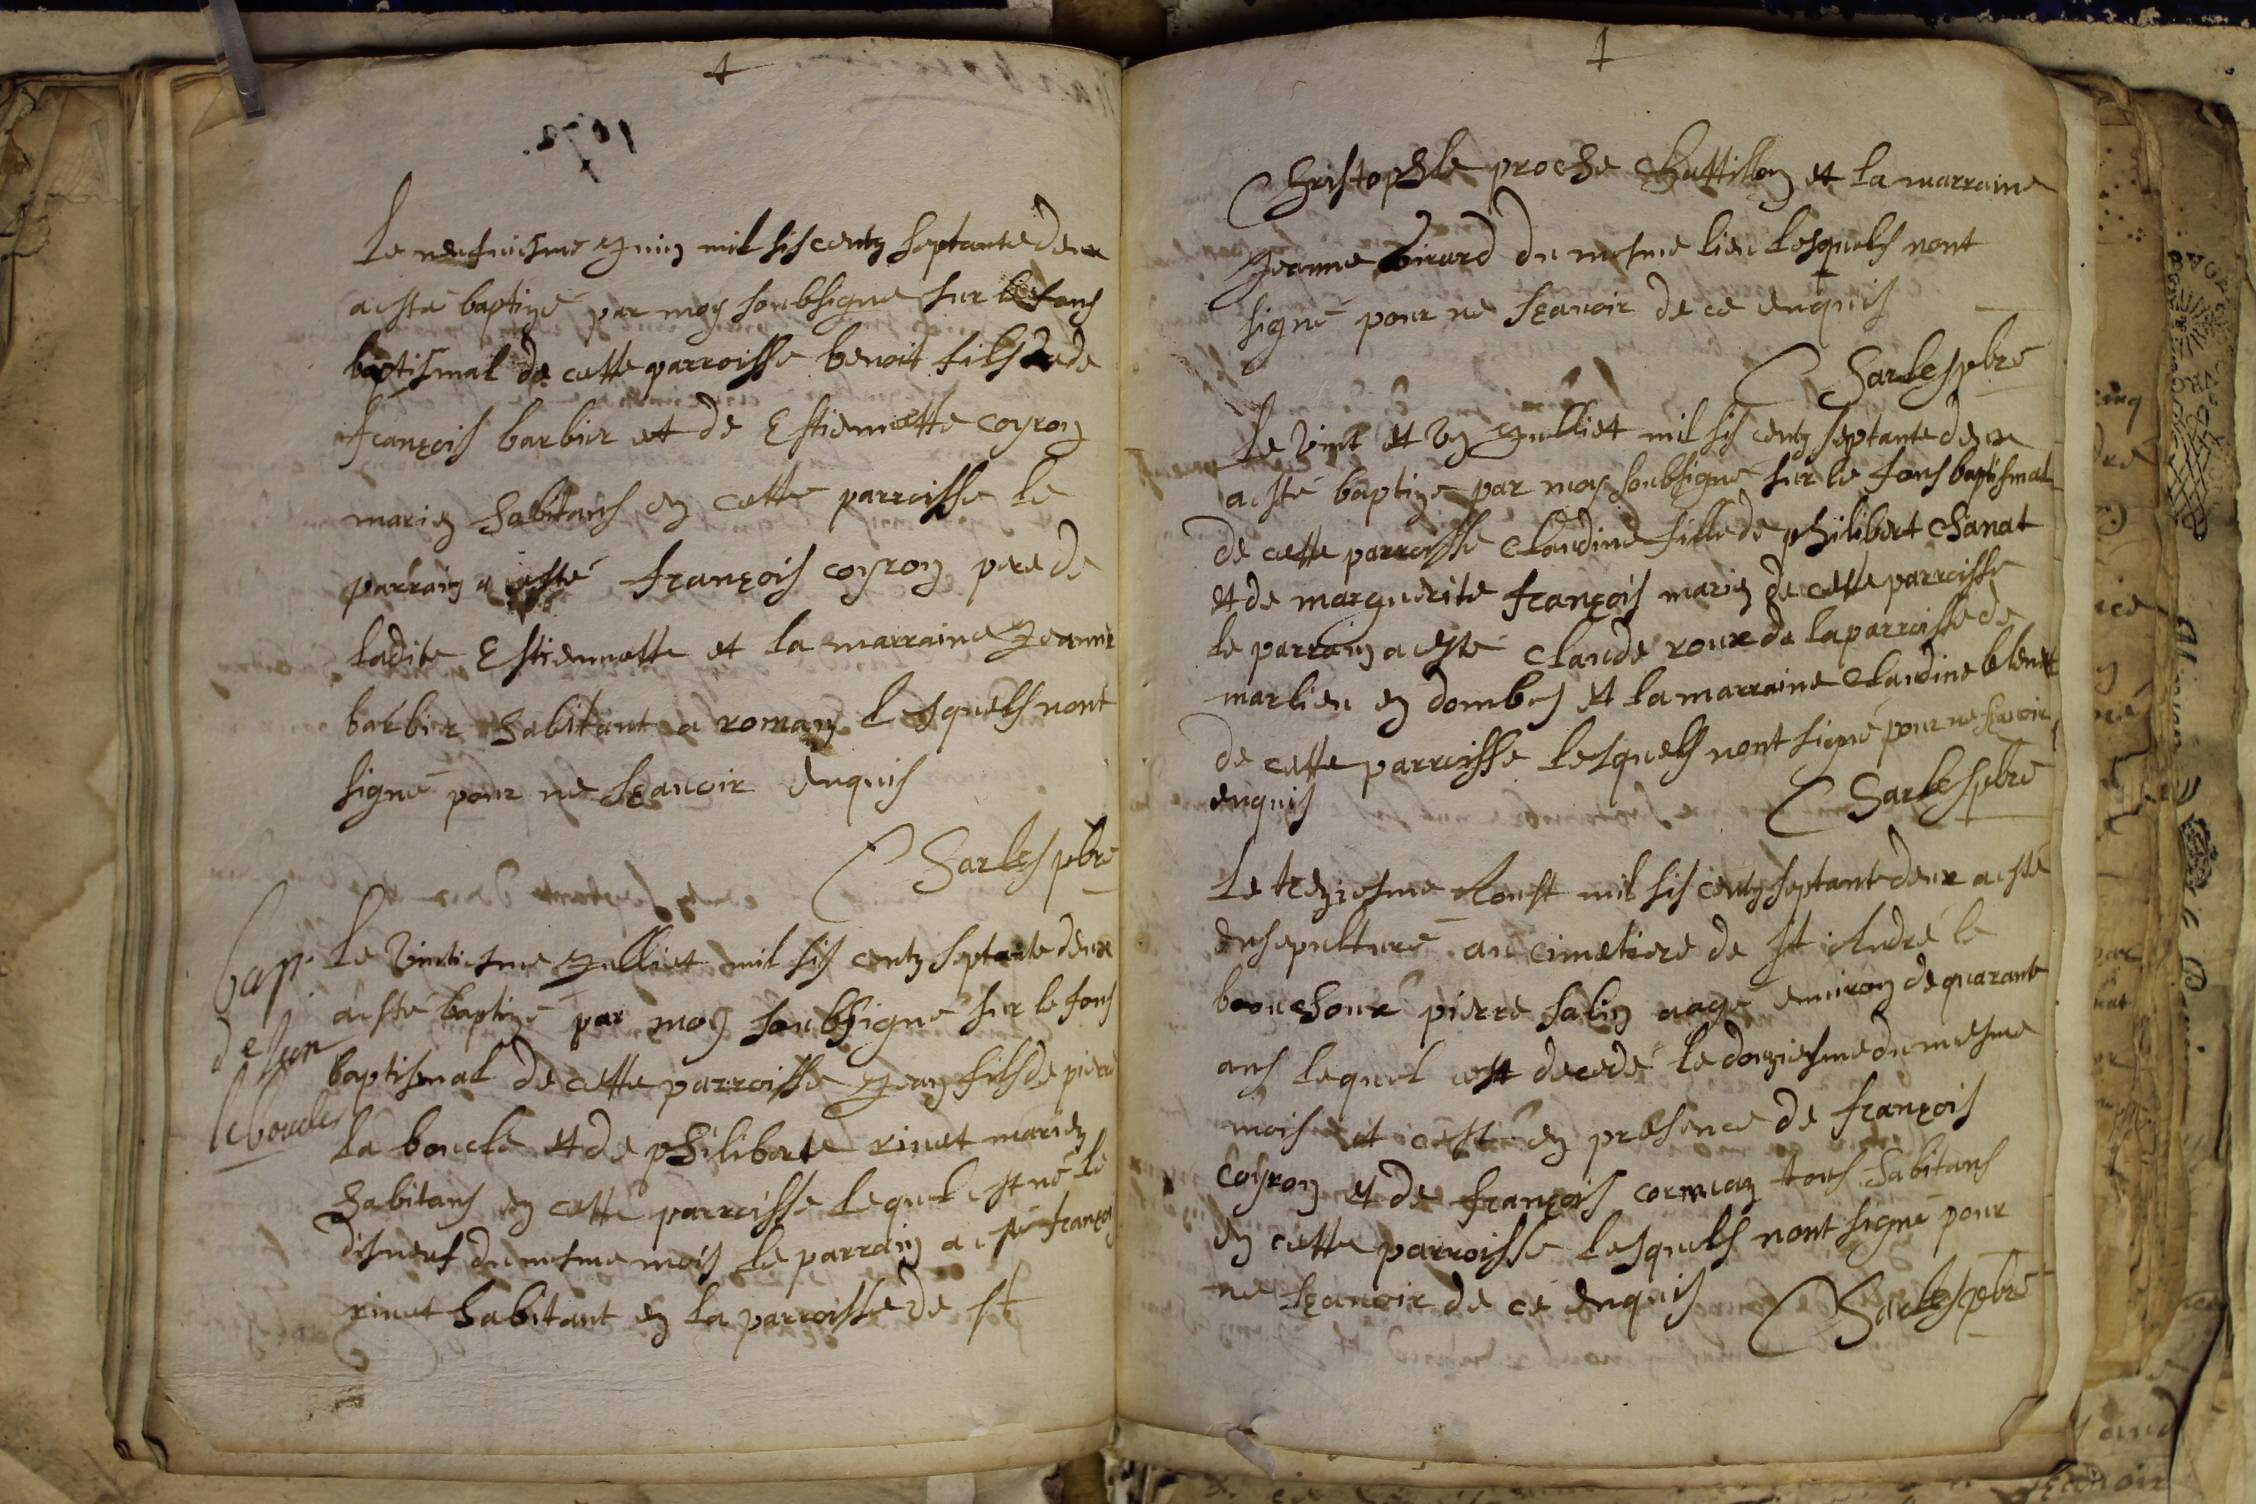 1672.
Le neufuiesme Juin mil sis centz septante deux
a esté baptizé par moy soubsigne sur le fons
baptismal de cette parroisse benoit fils de
françois barbier et de Estiennette coyron
mariez habitans en cette parroisse le
parrain a esté françois coyron pere de
ladite Estiennette et la marraine Jeanne
barbier habitant a roman lesquels nont
signé pour ne sçauoir enquis
Sarles pbre
bap.
de Jean
leboucle
Le vintiesme Julliet mil sis centz septante deux
a esté baptizé par moy soubsigne sur le fons
baptismal de cette parroisse Jean fils de pierre
la boucle et de philiberte rinet mariez
habitans en cette parroisse lequel est né le
disneuf du mesme mois le parrain a esté françois
rinet habitant en la parroisse de st
Christophle proche Chattillon et la marraine
Jeanne Girard du mesme lieu lesquels nont
signé pour ne sçauoir de ce enquis
Sarles pbre
Le vint et un Julliet mil sis centz septante deux
a esté baptize par moy soubsigne sur le fons baptismal
de cette parroisse Claudine fille de philibert Chanat
et de marguerite françois mariez de cette parroisse
le parrain a esté Claude roux de la parroisse de
marlieu en dombes et la marraine Claudine blenet
de cette parroisse lesquels nont signé pour ne sçauoir
enquis
Sarles pbre
Le treziesme Aoust mil sis centz septante deux a esté
ensepulturé au cimetiere de st Andre le
bouchoux pierre salin aage enuiron de quarante
ans lequel est decedé le douziesme du mesme
mois et cest en presence de françois
Coyron et de françois tous habitans
en cette parroisse lesquels nont signé pour
ne sçauoir de ce enquis
Sarles pbre